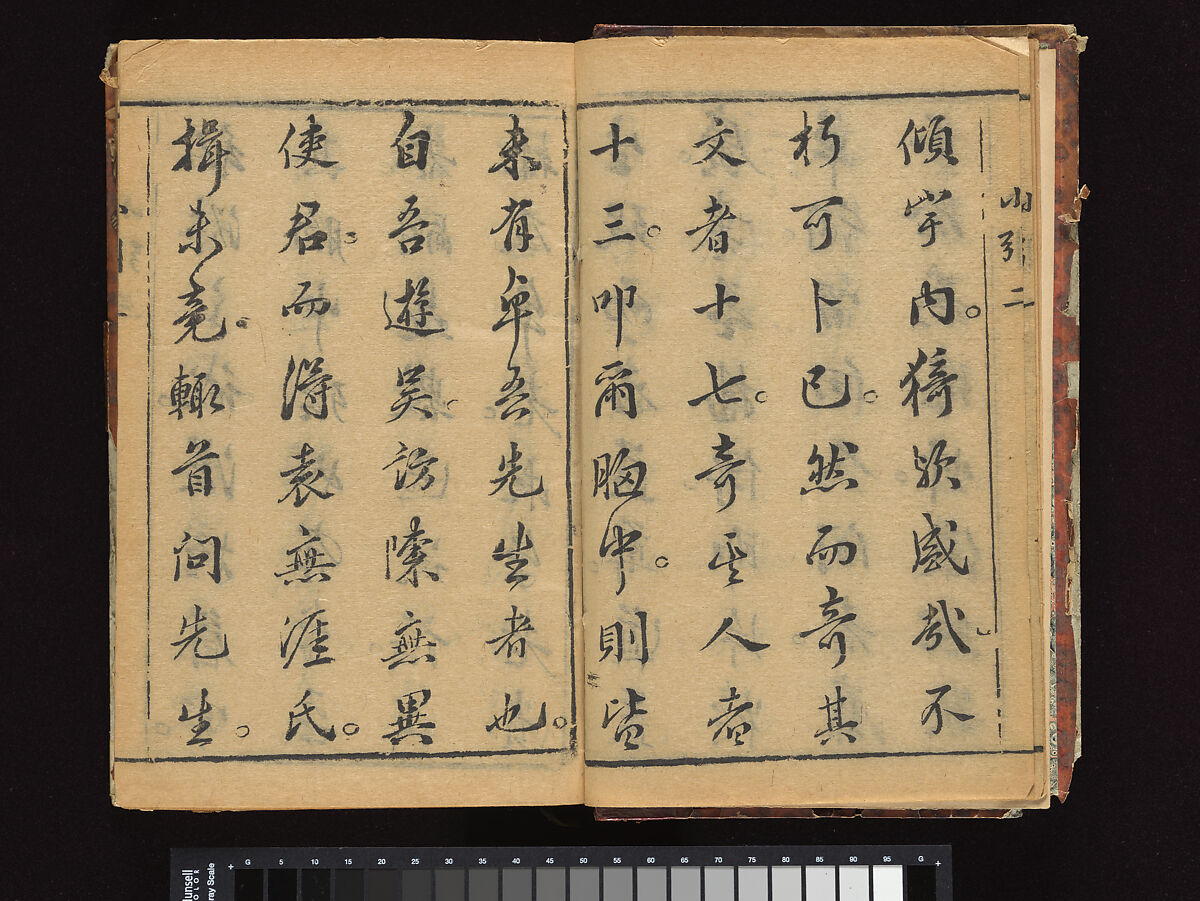 傾宇內。猗歟盛哉不
朽可卜已。然而奇其
文者十七。奇其人者
十三。叩爾胸中。則皆
未有卓吾先生者也。
自吾遊吳。訪求無異
使君。而得袁無涯氏。
揖未竟。輙首問先生。
小引 二
G 5 10 15 20 25 30 35 40 45 50 55 60 65 70 75 80 85 90 95 G